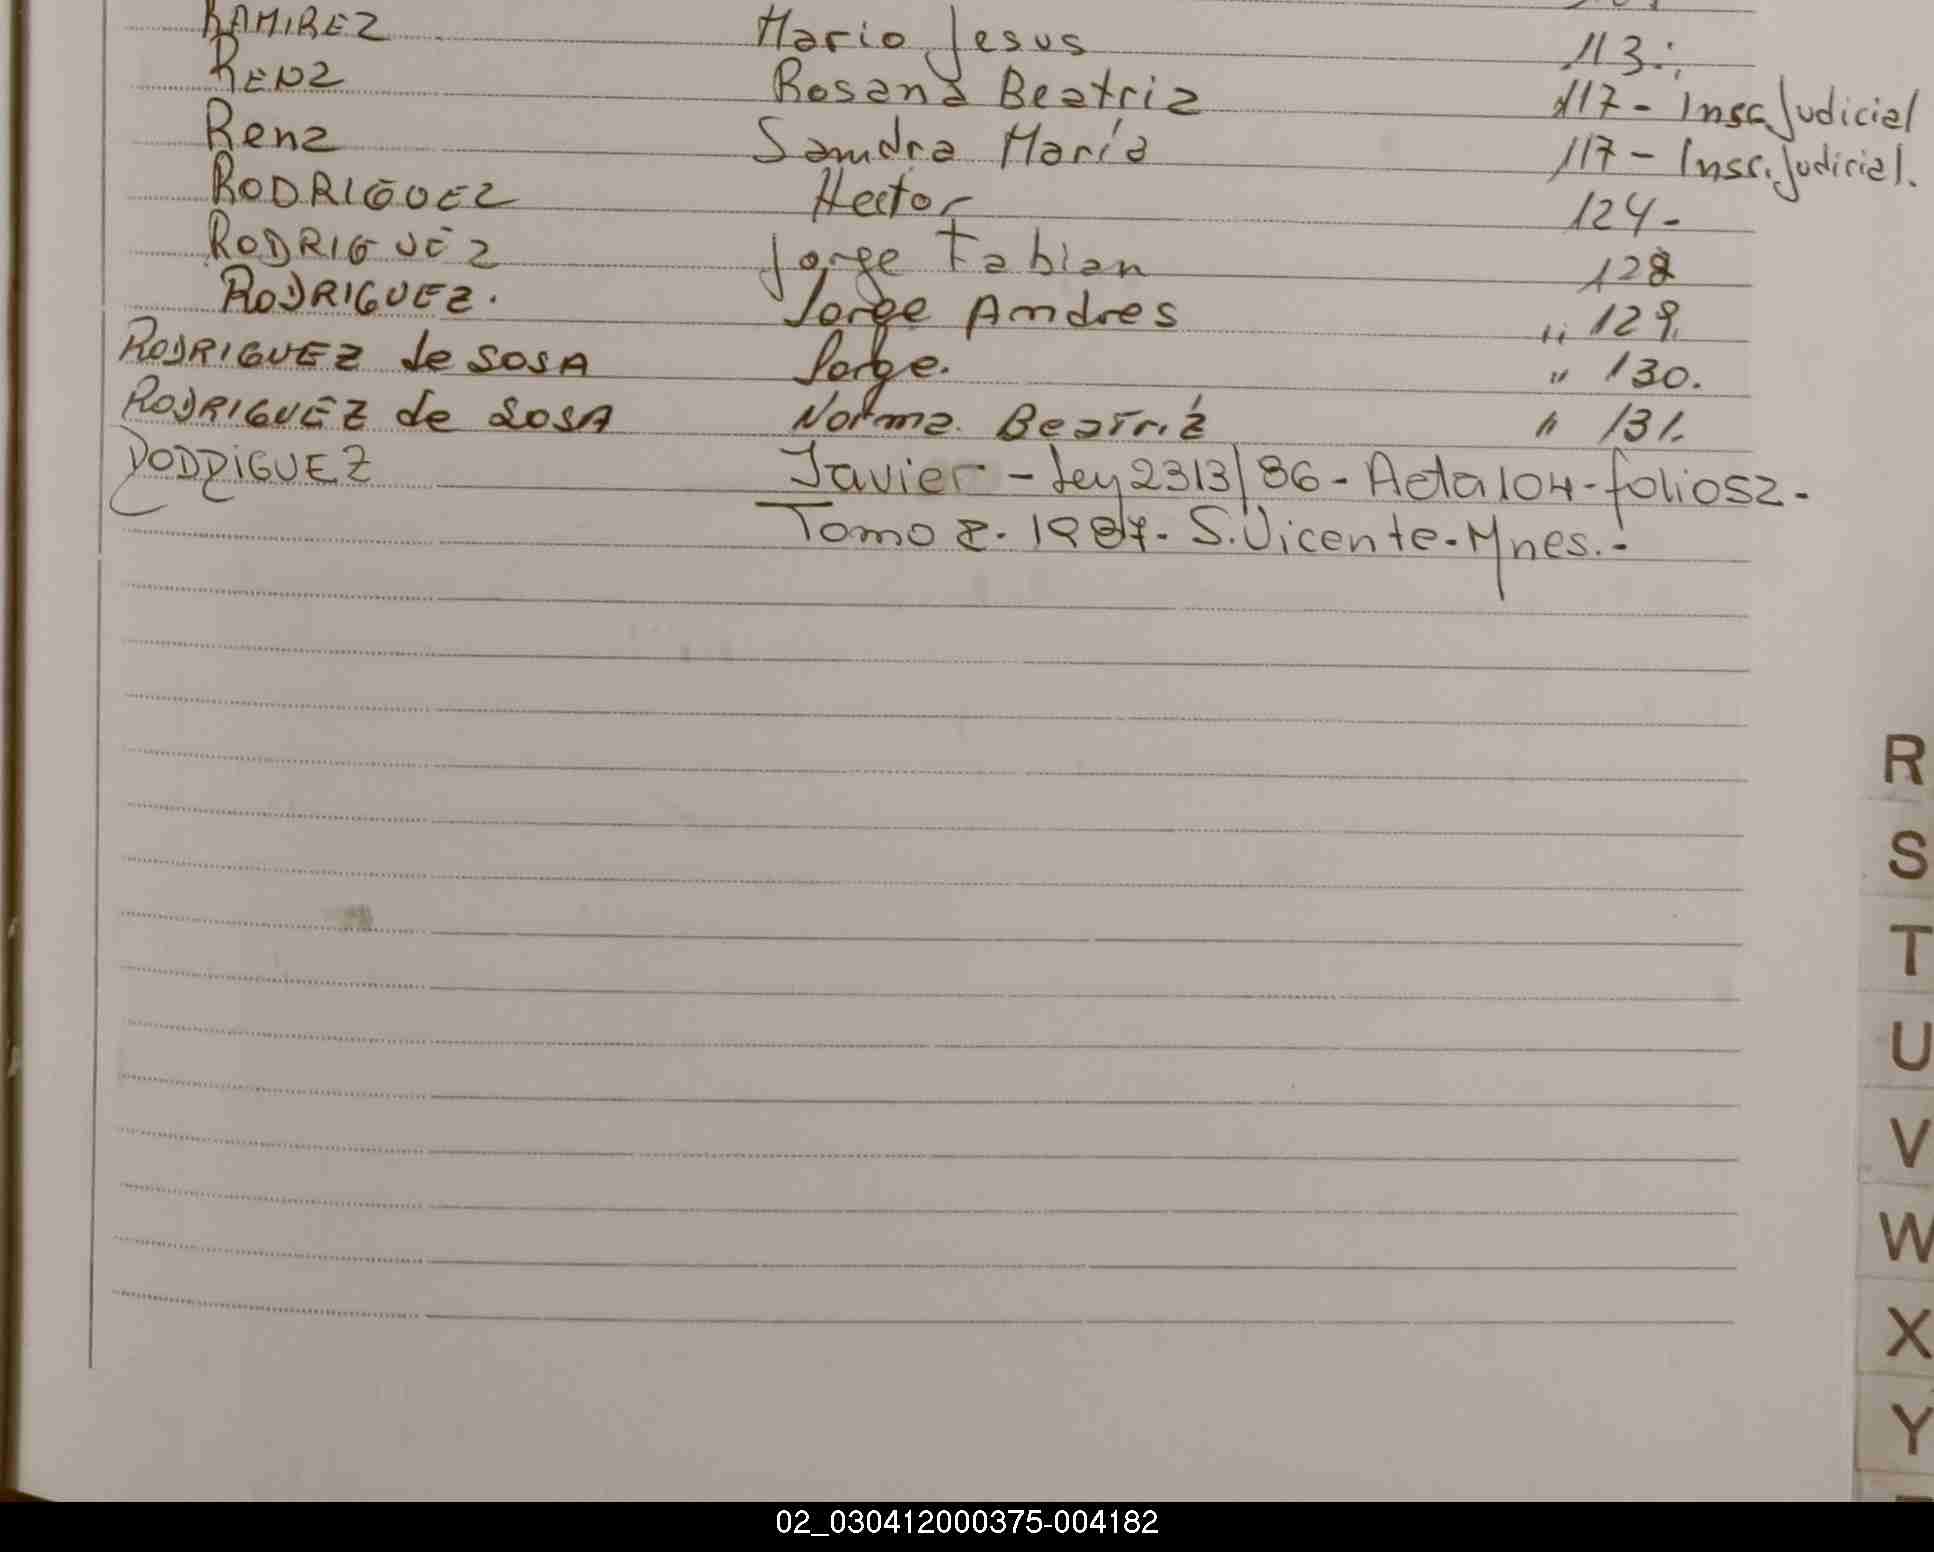 RAMIREZ Mario Jesus 113.:
RENZ Rosana Beatriz 117 - Insc. Judicial
Renz Sandra María 117 - Insc. Judicial.
RODRIGUEZ Hector 124-
RODRIGUEZ Jorge Fabian 128
RODRIGUEZ. Jorge Andres " 129.
RODRIGUEZ de SOSA Jorge. " 130.
RODRIGUEZ de SOSA Norma Beatríz " 131.
RODRIGUEZ Javier - Ley 2313/86 - Acta 104 - folio 52 -
Tomo 2. 1987. S. Vicente - Mnes. -
R
S
T
U
V
W
X
Y
02_030412000375-004182